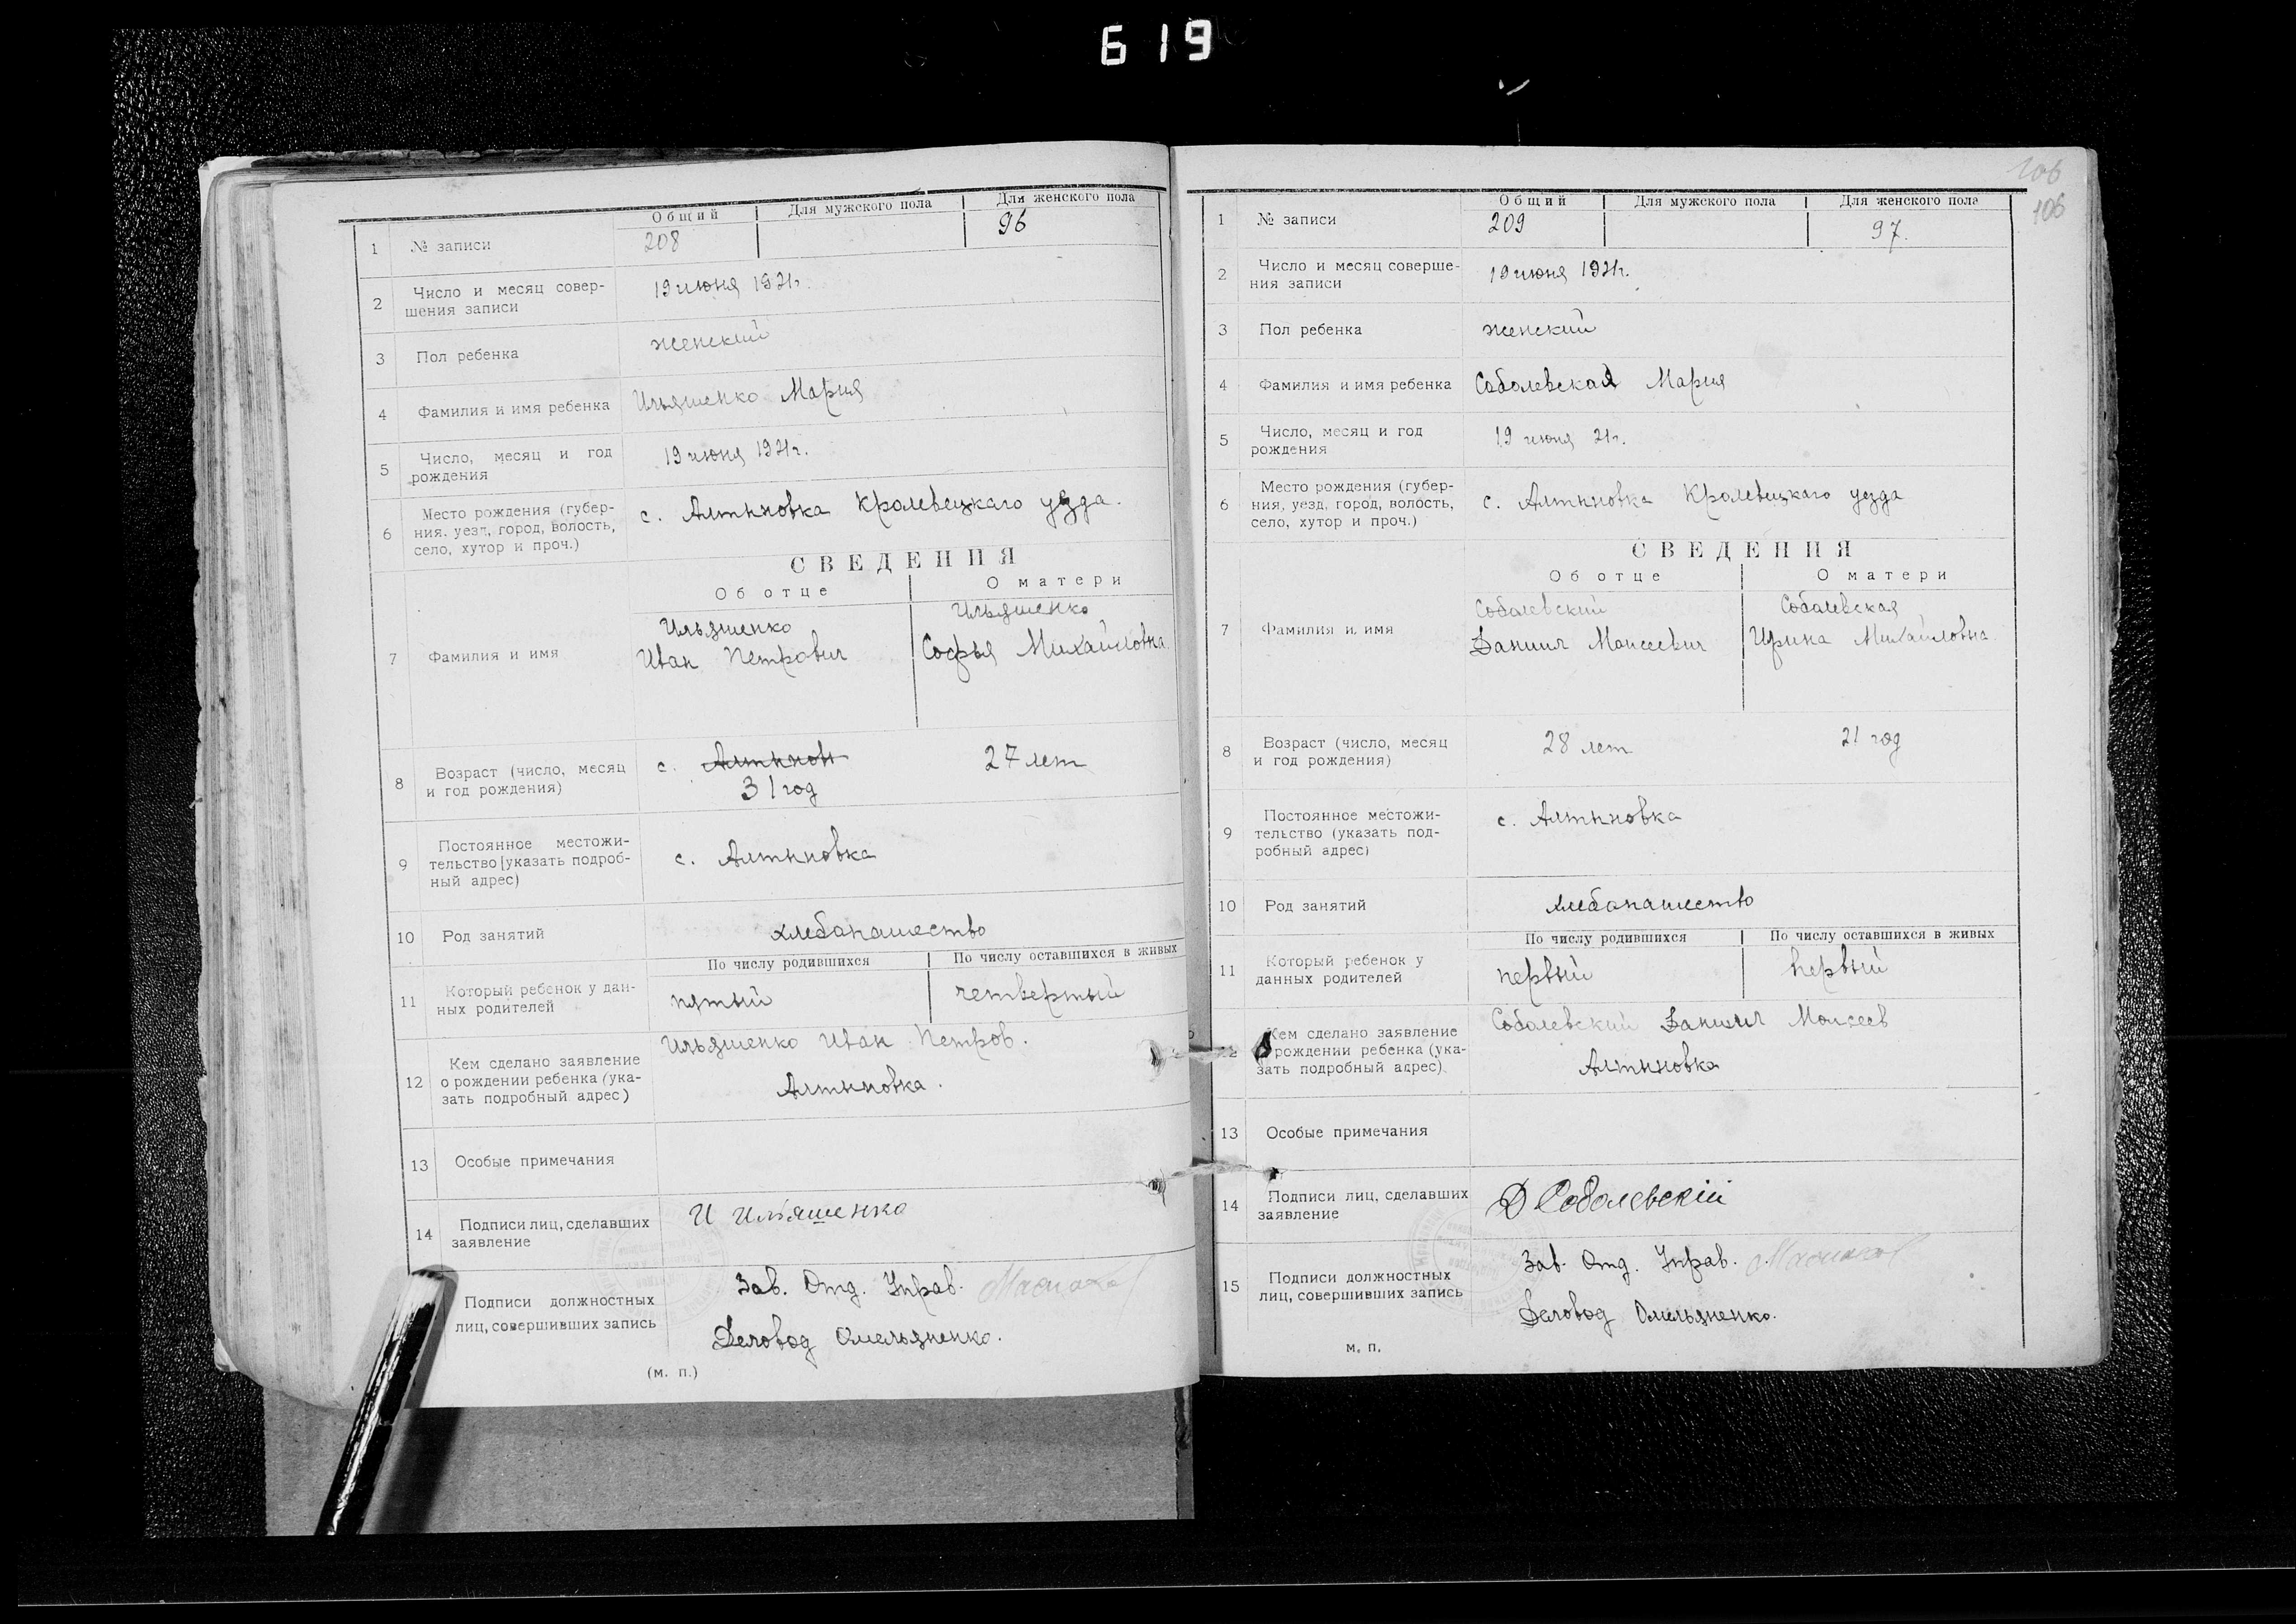 619
Общий Для мужского пола Для женского пола
1 № записи 208 96
2 Число и месяц совер-
шения записи 19 июня 1921г.
3 Пол ребенка женский
4 Фамилия и имя ребенка Ильяшенко Мария
5 Число, месяц и год
рождения 19 июня 1921г.
6 Место рождения (губер-
ния, уезд, город, волость,
село, хутор и проч.) с. Алтыновка Кролевецкаго уезда.
СВЕДЕНИЯ
Об отце О матери
7 Фамилия и имя
Ильяшенко Ильяшенко
Иван Петрович Софья Михайловна
8 Возраст (число, месяц
и год рождения) с. Алтынов 27 лет
31 год
9 Постоянное местожи-
тельство (указать подроб-
ный адрес) с. Алтыновка
10 Род занятий хлебопашество
По числу родившихся По числу оставшихся в живых
11 Который ребенок у дан-
ных родителей пятый четвертый
12 Кем сделано заявление
о рождении ребенка (ука-
зать подробный адрес)
Ильяшенко Иван Петров.
Алтыновка.
13 Особые примечания
14 Подписи лиц, сделавших
заявление И Ильяшенко
Подписи должностных
лиц, совершивших запись
Зав. Отд. Управ.
Деловод Омельяненко.
(м. п.)
106
106
Общий Для мужского пола Для женского пола
1 № записи 209 97.
2 Число и месяц соверше-
ния записи 19 июня 1921г.
3 Пол ребенка женский
4 Фамилия и имя ребенка Соболевская Мария
5 Число, месяц и год
рождения 19 июня 21г.
6 Место рождения (губер-
ния, уезд, город, волость,
село, хутор и проч.) с. Алтыновка Кролевецкаго уезда
СВЕДЕНИЯ
Об отце О матери
7 Фамилия и имя
Соболевский Соболевская
Даниил Моисеевич Ирина Михайловна.
8 Возраст (число, месяц
и год рождения) 28 лет 21 год
9 Постоянное местожи-
тельство (указать под-
робный адрес) с. Алтыновка
10 Род занятий хлебопашество
По числу родившихся По числу оставшихся в живых
11 Который ребенок у
данных родителей первый первый
Кем сделано заявление
рождении ребенка (ука-
зать подробный адрес)
Соболевский Даниил Моисеев
Алтыновка
13 Особые примечания
14 Подписи лиц, сделавших
заявление Д Соболевскій
15 Подписи должностных
лиц, совершивших запись
Зав. Отд. Управ.
Деловод Омельяненко.
м. п.